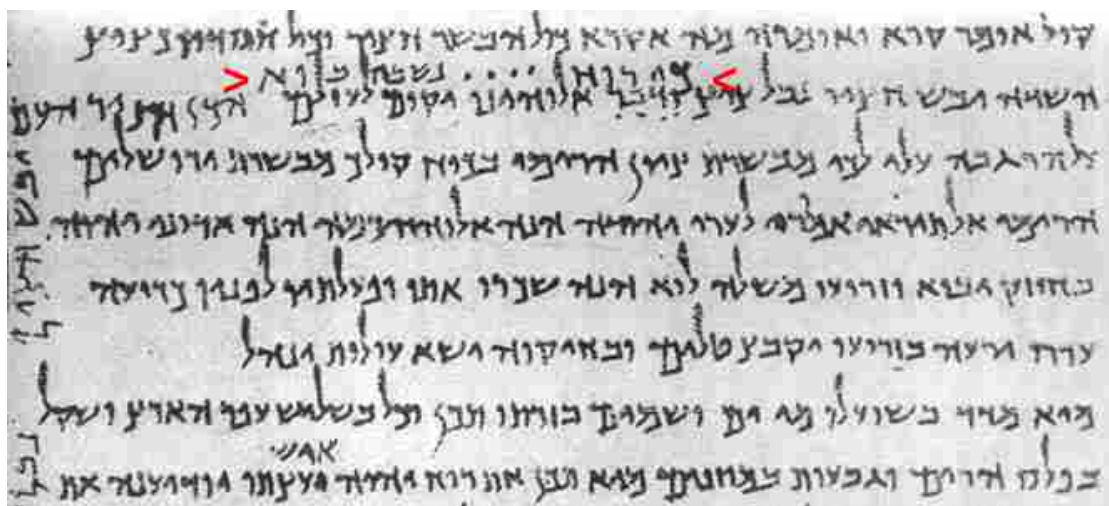 קול אומר קרא ואומרה מה אקרא כול הבשר חציר וכול חסדיו כציץ
> כי רוח .... נשבה בוא <
השדה יבש חציר נבל ציץ ודבר אלוהינו יקום לעולם הכן חציר העם
על הר גבה עלי לכי מבשרת ציון הרימי בכוח קולך מבשרת ירושלים
הרימי אל תיראי אמרי לערי יהודה הנה אלוהיכמה הנה אדוני יהוה
בחוזק יבוא וזרועו משלה לוא הנה שכרו אתו ופעלתיו לפניו כרועה
עדרו ירעה בזרועו יקבץ טלים ובחיקוה ישא עולות ינהל
מיא מדד בשועלו מי ים ושמים בזרתו תכן וכל בשליש עפר הארץ ושקל
בפלס הרים וגבעות במוזנים מיא תכן את רוח יהוה ועצתו יודיענה את